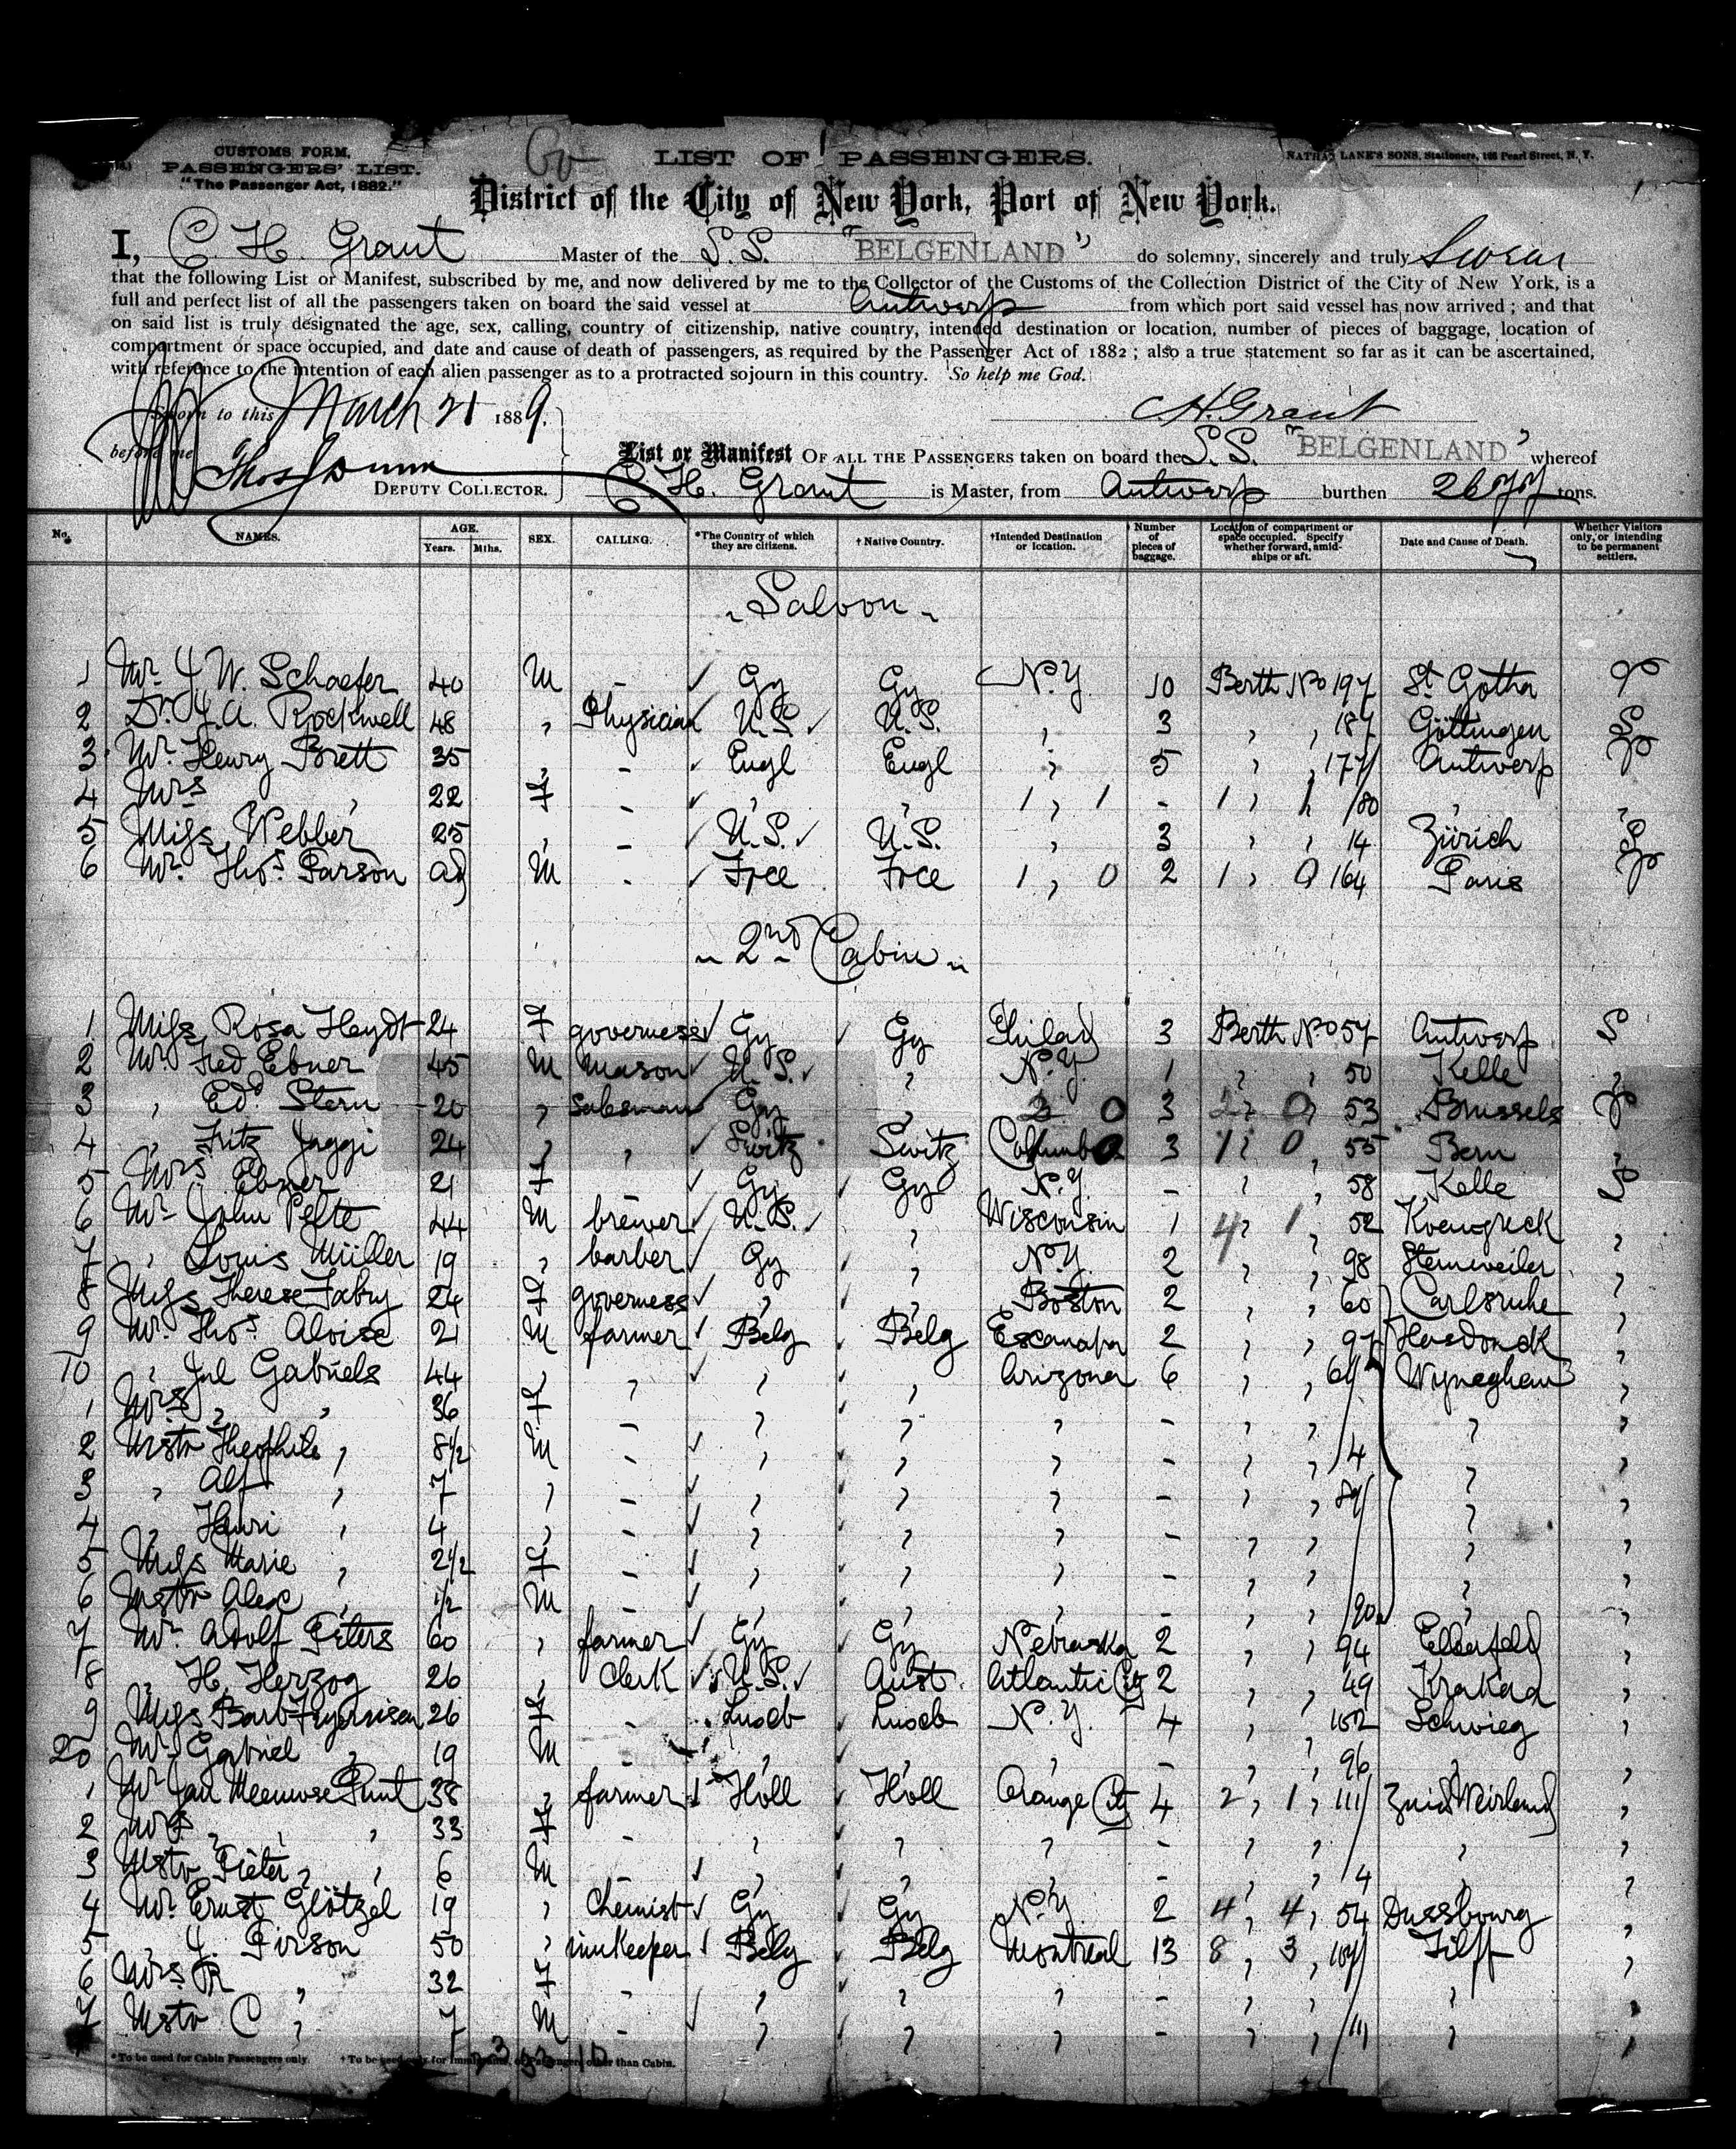 CUSTOMS FORM.
PASSENGERS' LIST.
"The Passenger Act, 1882."
LIST OF PASSENGERS.
NATHAN LANE'S SONS, Stationers, Pearl Street, N.Y.
District of the City of New York, Port of New York.
I, C. H. Grant Master of the S.S. "BELGENLAND" do solemny, sincerely and truly Swear
that the following List or Manifest, subscribed by me, and now delivered by me to the Collector of the Customs of the Collection District of the City of New York, is a
full and perfect list of all the passengers taken on board the said vessel at Antwerp from which port said vessel has now arrived; and that
on said list is truly designated the age, sex, calling, country of citizenship, native country, intended destination or location, number of pieces of baggage, location of
compartment or space occupied, and date and cause of death of passengers, as required by the Passenger Act of 1882; also a true statement so far as it can be ascertained,
with reference to the intention of each alien passenger as to a protracted sojourn in this country. So help me God.
Sworn to this March 21 1889. C.H. Grant
before me
DEPUTY COLLECTOR.
List or Manifest OF ALL THE PASSENGERS taken on board the S.S. "BELGENLAND" whereof
C. H. Grant is Master, from Antwerp burthen tons.
No. NAMES. AGE. Years. Mths. SEX. CALLING. *The Country of which they are citizens. †Native Country. †Intended Destination or location. Number of pieces of baggage. Location of compartment or space occupied. Specify whether forward, amidships or aft. Date and Cause of Death. Whether Visitors only, or intending to be permanent settlers.
Saloon
1 Mr W. Schaefer 40 M - Gy Gy N.Y. 10 Berth No 197 St Gotha
2 Dr. A. Rockwell 48 " Physician U.S. U.S. " 3 " " 187 Göttingen
3 Mr. Henry Brett 35 " - Engl Engl " 5 " " 177 Antwerp
4 Mrs " 22 F - " " " - " " 180 "
5 Miss Webber 25 " - U.S. U.S. " 3 " " 14 Zürich
6 Mr. Thos. Parson ad M - Frce Frce " 2 " " 164 Paris
2nd Cabin
1 Miss Rosa Heydt 24 F governess Gy Gy Philad 3 Berth No 57 Antwerp S
2 Mr. Fred Ebner 45 M Mason U.S. " N.Y. 1 " " 50 Kelle "
3 " Ed. Stern 20 " Salesman Gy " " 3 " " 53 Brussels
4 " Fritz Jaggi 24 " " Switz Switz 3 " " 55 Bern "
5 Mrs. Ebner 21 F - Gy Gy N.Y. - " " 58 Kelle S
6 Mr John Pelte 44 M brewer U.S. " Wisconsin 1 " " 52 "
7 " Louis Müller 19 " barber Gy " N.Y. 2 " " 98 Steinweiler "
8 Miss Therese Fabry 24 F governess " " Boston 2 " " 60 Carlsruhe "
9 Mr. Thos. Aloise 21 M farmer Belg Belg Escanaba 2 " " 97 Hasdonck "
10 " Jul Gabriels 44 " " " " Arizona 6 " " "
1 Mrs " " 36 F - " " " - " " " "
2 Mstr Theophile " 8 1/2 M - " " " - " " " "
3 " Alf " 7 " - " " " - " " " "
4 " Henri " 4 " - " " " - " " " "
5 Miss Marie " 2 1/2 F - " " " - " " " "
6 Mstr Alex " 1/2 M - " " " - " " 90 " "
7 Mr. Adolf Peters 60 " farmer Gy Gy Nebraska 2 " " 94 Elberfeld "
18 " H. Herzog 26 " Clerk U.S. Aust. Atlantic City 2 " " 49 Krakau "
9 Miss Barb 26 F - Luxeb Luxeb N.Y. 4 " " 102 "
20 Mr Gabriel " 19 M - " " " - " " 96 " "
1 Mr Jan Meeuwse Punt 38 " farmer Holl Holl Orange City 4 " " 111 "
2 Mrs " " 33 F - " " " - " " " "
3 Mstr Pieter " " 6 M - " " " - " " 14 " "
4 Mr. Ernst Glötzel 19 " Chemist Gy Gy N.Y. 2 " " 54 Dussbourg "
5 " J. Pirson 50 " innkeeper Belg Belg Montreal 13 " " 107 Tilff "
6 Mrs. R " 32 F - " " " - " " " "
7 Mstr C " 7 M - " " " - " " 111 " "
*To be used for Cabin Passengers only. †To be used only for Immigrants, or Passengers other than Cabin.